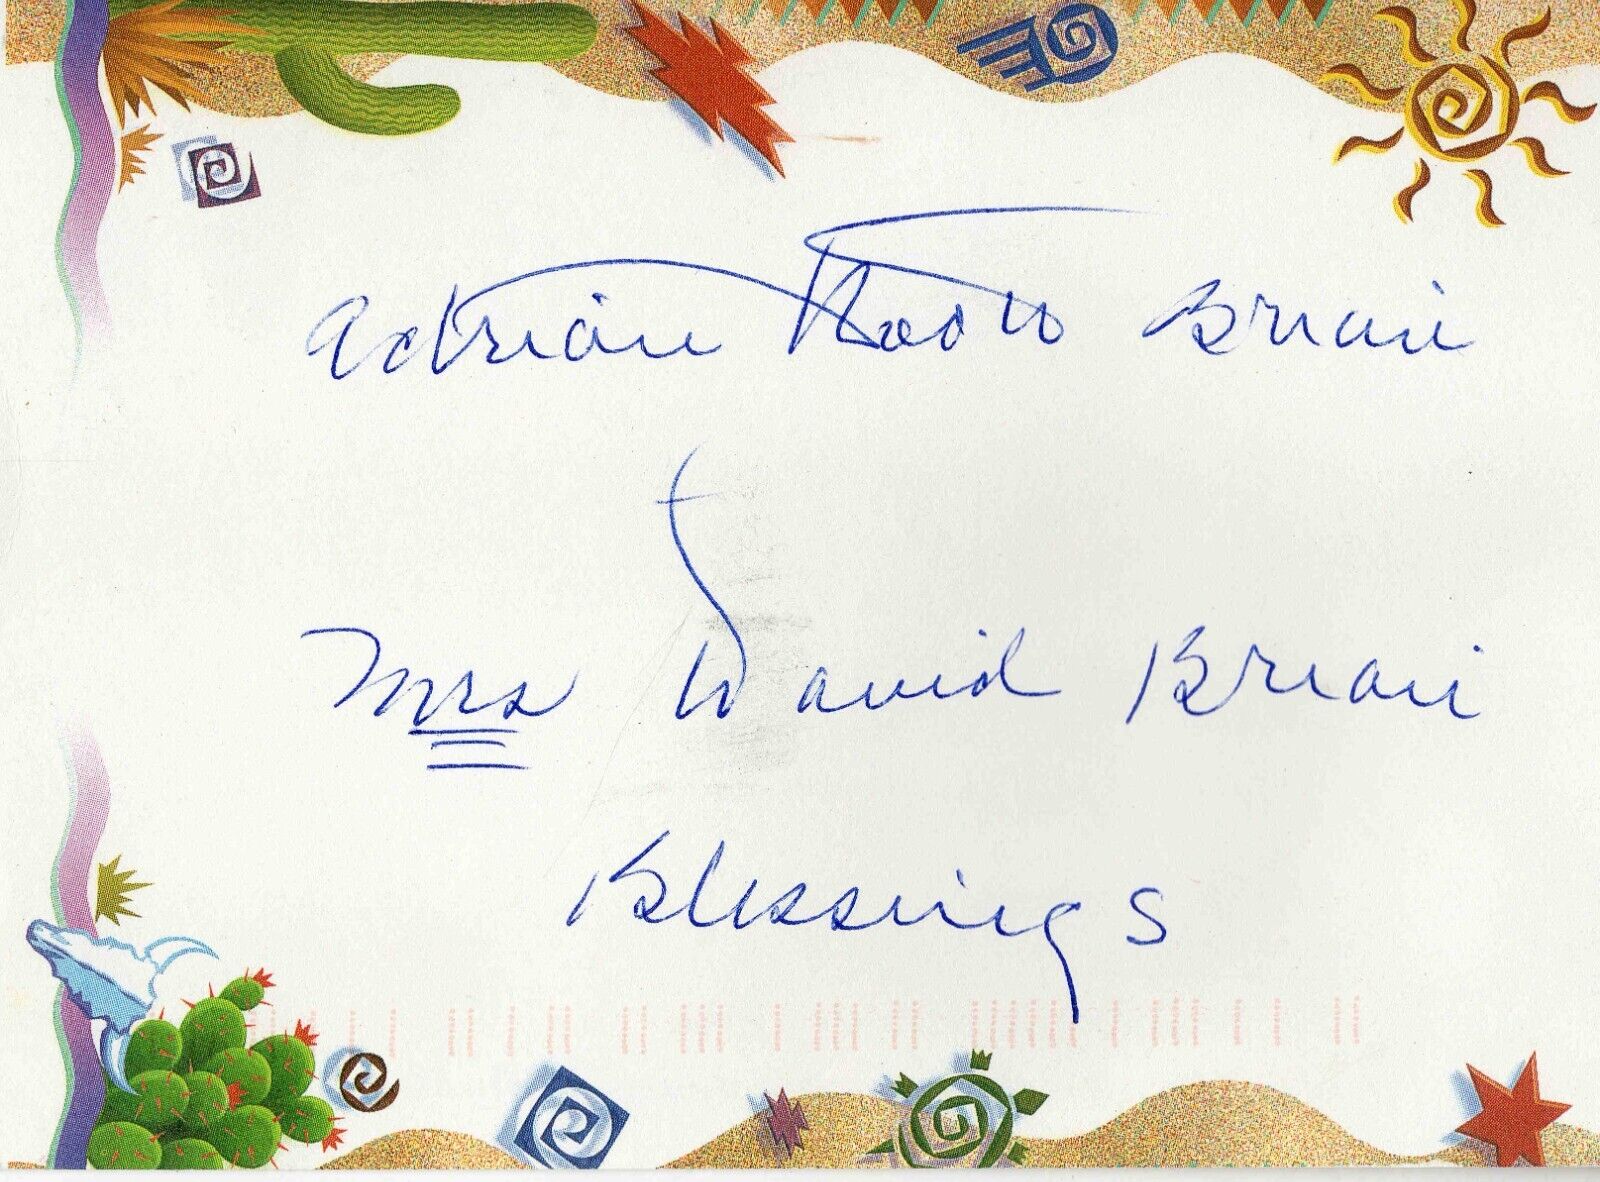 Adrian Booth Brian
Mrs David Brian
Blessings